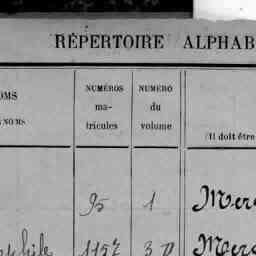 RÉPERTOIRE ALPHAB
OMS
NOMS
NUMÉROS
ma-
tricules
NUMÉRO
du
volume
(Il doit être
95 1 Mer
1157 3 Merc